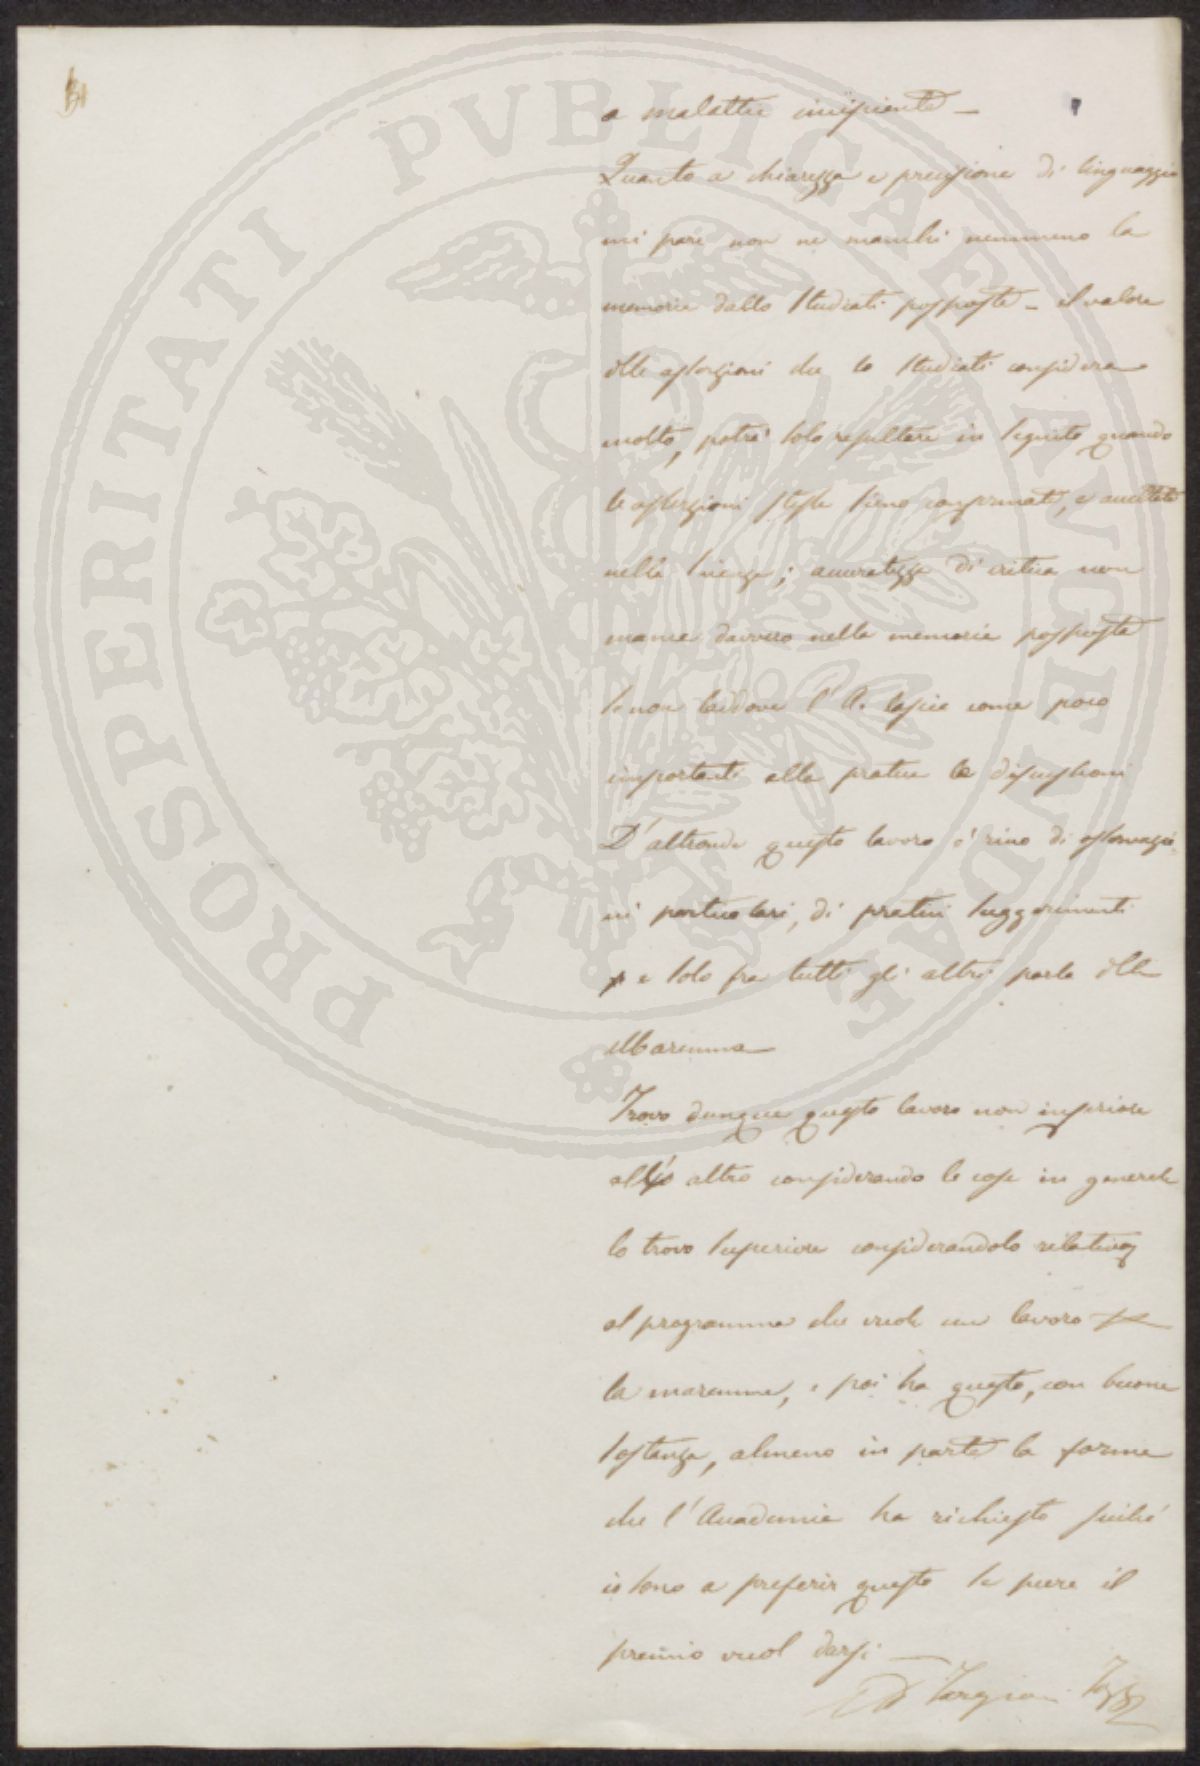 a malattie incipienti –
Quanto a chiarezza e precisione di linguaggio
mi pare non ne manchi nemmeno la
memoria dallo Studiati posposta – il valore
delle asserzioni che lo Studiati considera
molto, potrà solo resultare in seguito quando
le asserzioni stesse sieno confermate, e accettate
nella scienza; accuratezza di critica non
manca davvero nella memoria posposta
se non laddove l'A. lascia come poco
importanti alla pratica le discussioni
D'altronde questo lavoro è ricco di osservazio-
ni particolari, di pratici suggerimenti
e solo fra tutti gli altri parla della
Maremma
Trovo dunque questo lavoro non inferiore
all' altro considerando le cose in generale
lo trovo superiore considerandolo relativa
al programma che vuole un lavoro per
la maremma, e poi ha questo, con buona
sostanza, almeno in parte la forma
che l'Accademia ha richiesto sicché
io sono a preferir questo se pure il
premio vuol darsi –
Ad Targioni Tozz
PROSPERITATI PVBLICAE AVGENDAE